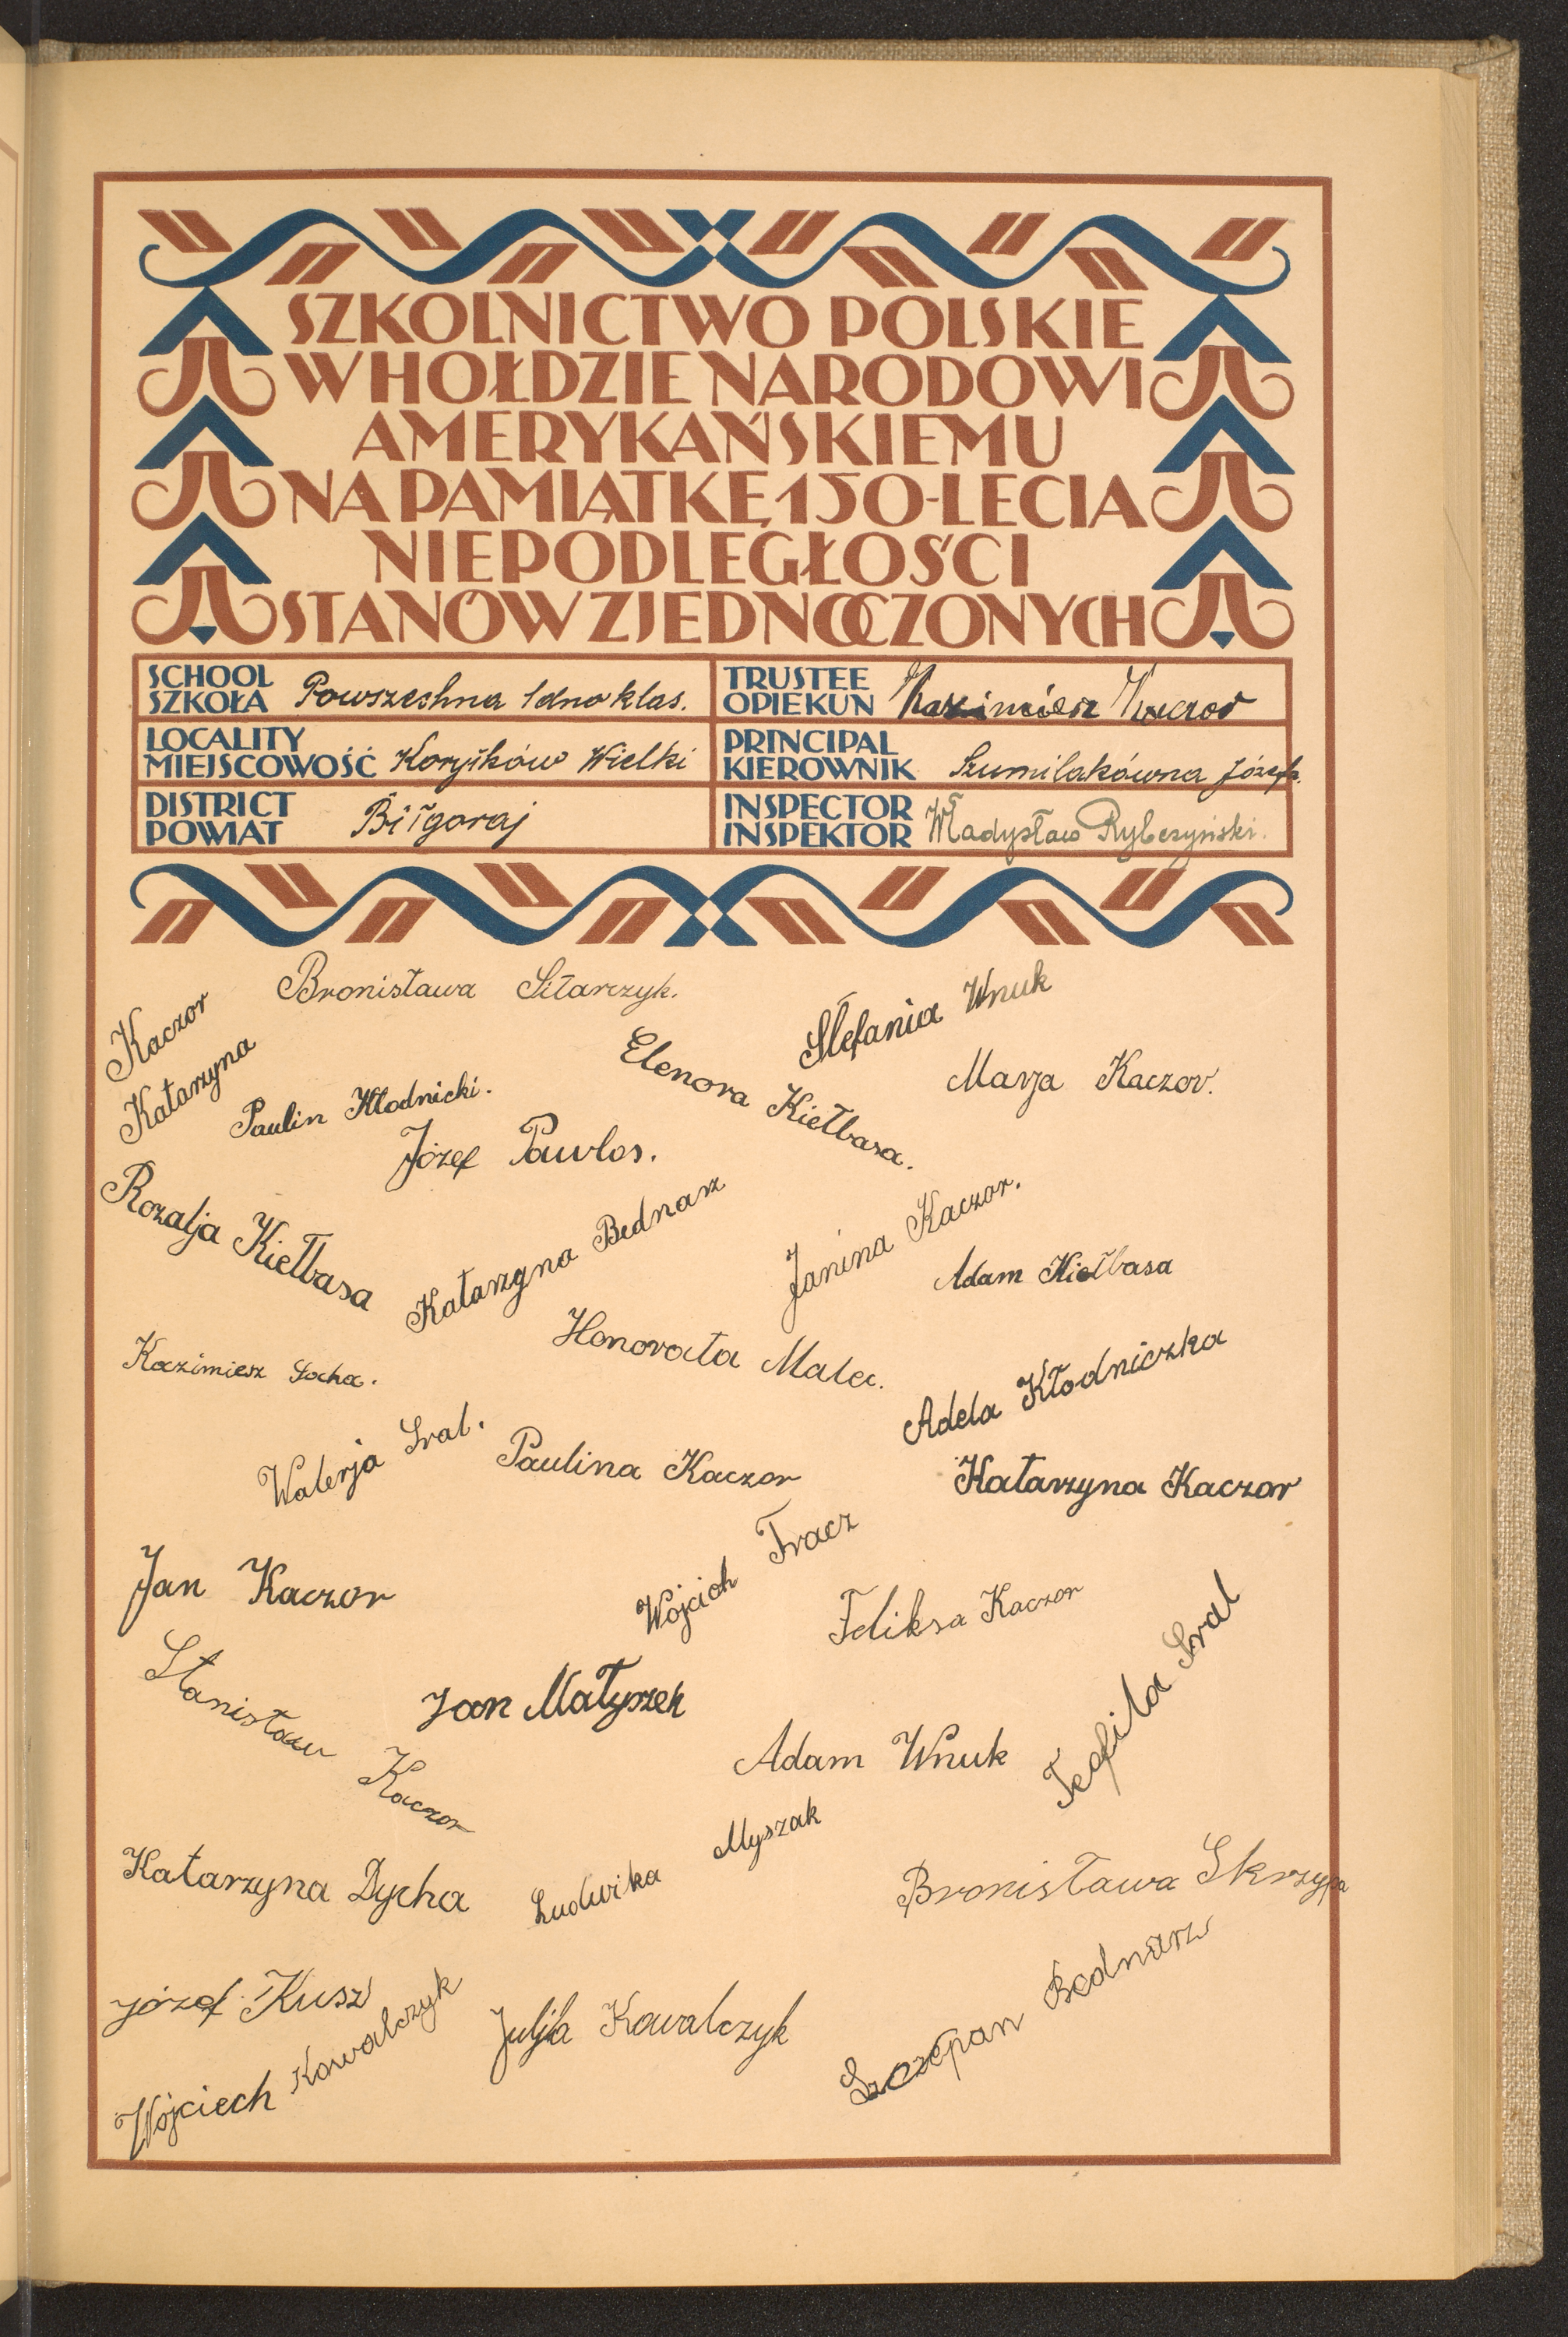 SZKOLNICTWO POLSKIE
W HOŁDZIE NARODOWI
AMERYKAŃSKIEMU
NA PAMIĄTKĘ 150-LECIA
NIEPODLEGŁOŚCI
STANÓW ZJEDNOCZONYCH
SCHOOL
SZKOŁA Powszechna 1dno klas.
TRUSTEE
OPIEKUN Kazimierz Kaczor
LOCALITY
MIEJSCOWOŚĆ Korytków Wielki
PRINCIPAL
KIEROWNIK Szumilakówna Józefa.
DISTRICT
POWIAT Biłgoraj
INSPECTOR
INSPEKTOR Władysław Rybczyński.
Bronisława Sitarczyk.
Stefania Wnuk
Kaczor
Katarzyna
Elenora Kiełbasa.
Marja Kaczor.
Paulin Kłodnicki.
Józef Pawlos.
Rozalja Kiełbasa
Katarzyna Bednarz
Janina Kaczor.
Adam Kiełbasa
Honorata Malec.
Kazimiesz Socha.
Adela Kłodniczka
Walerja Sral.
Paulina Kaczor
Katarzyna Kaczor
Jan Kaczor
Wojcich Tracz
Feliksa Kaczor
Teofila Sral
Stanisław Kaczor
Jan Małyszek
Adam Wnuk
Katarzyna Dycha
Ludwika Myszak
Bronisława Skrzypa
Józef Kusz
Wojciech Kowalczyk
Julja Kowalczyk
Szczepan Bednarz